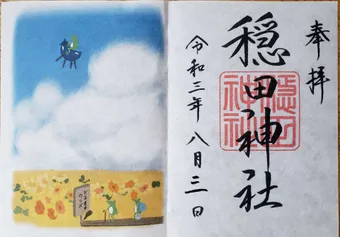 奉拝
穏田神社
令和三年八月三日
穏田
神社